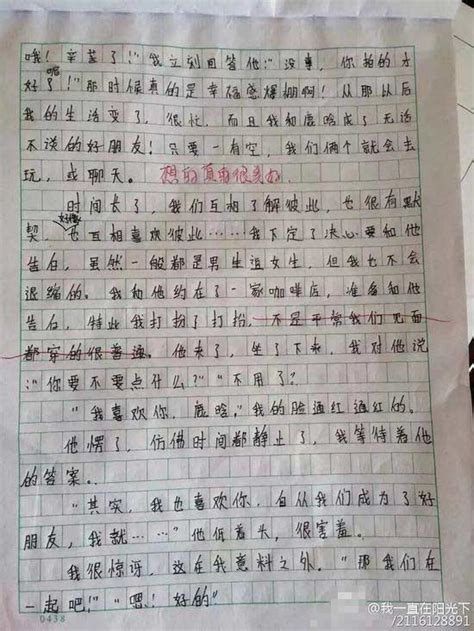 哦！辛苦了！"我立刻回答他："没事，你拍的才
好了呢！"那时候真的是幸福感爆棚啊！从那以后
我的生活变了，很忙，而且我和鹿晗成了无话
不谈的好朋友！只要一有空，我们俩个就会去
玩，或聊天。想的真的很美好
时间长了，我们互相了解彼此，也很有默
契，好像也互相喜欢彼此……我下定了决心要和他
告白，虽然一般都是男生追女生，但我也不会
退缩的。我和他约在了一家咖啡店，准备和他
告白，特此我打扮了打扮，不是平常我们见面
都穿的很普通。他来了，坐了下来，我对他说
："你要不要点什么？""不用了？
"我喜欢你，鹿晗。"我的脸通红通红的。
他愣了，仿佛时间都静止了，我等待着他
的答案。
"其实，我也喜欢你，自从我们成为了好
朋友，我就……"他低着头，很害羞。
我很惊讶，这在我意料之外。"那我们在
一起吧！""嗯！好的"
0438
@我一直在阳光下
/2116128891